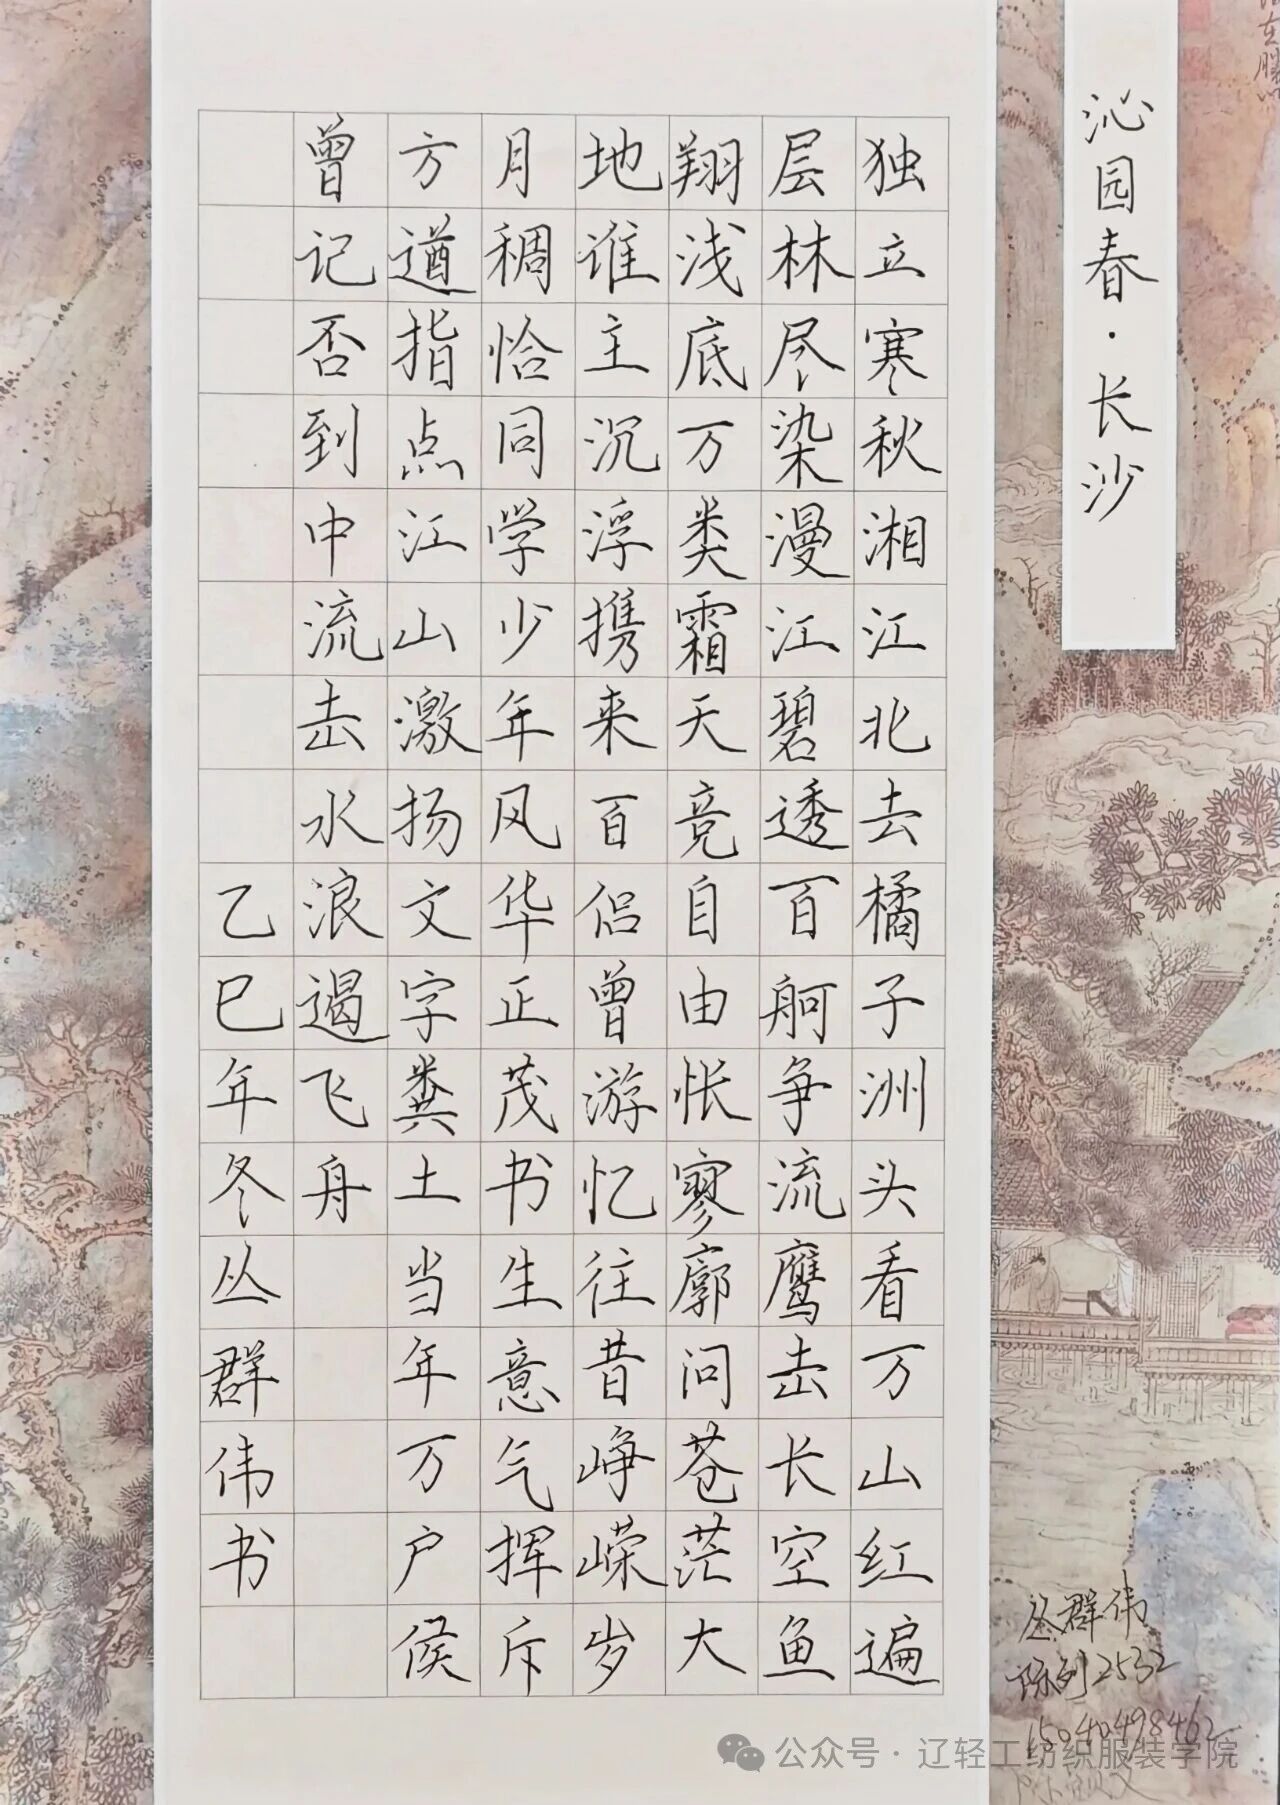 沁园春·长沙
独立寒秋湘江北去橘子洲头看万山红遍
层林尽染漫江碧透百舸争流鹰击长空鱼
翔浅底万类霜天竞自由怅寥廓问苍茫大
地谁主沉浮携来百侣曾游忆往昔峥嵘岁
月稠恰同学少年风华正茂书生意气挥斥
方遒指点江山激扬文字粪土当年万户侯
曾记否到中流击水浪遏飞舟
乙巳年冬丛群伟书
丛群伟
陈列2532
15040498462
公众号·辽轻工纺织服装学院